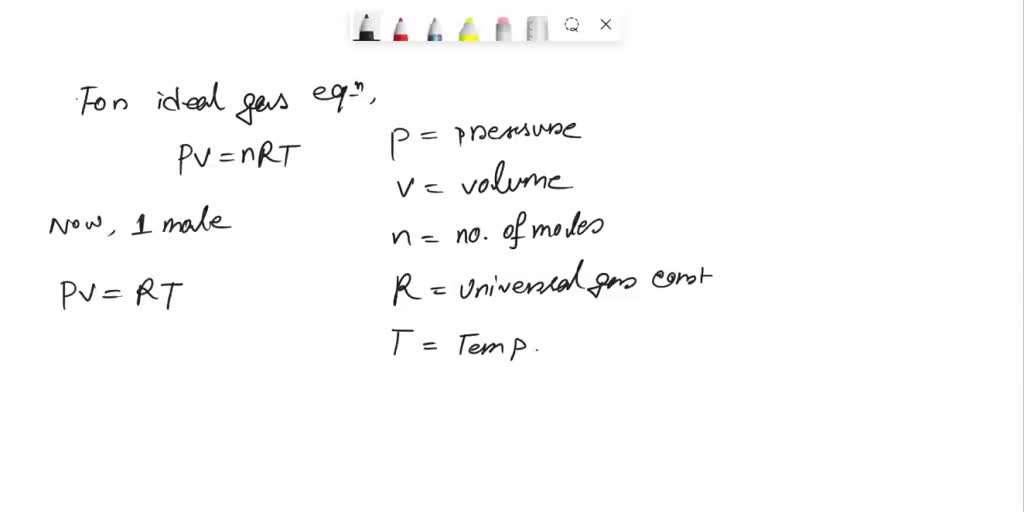 For ideal gas eqⁿ,
PV = nRT
Now, 1 mole
PV = RT
P = pressure
V = volume
n = no. of moles
R = Universal gas const
T = Temp.